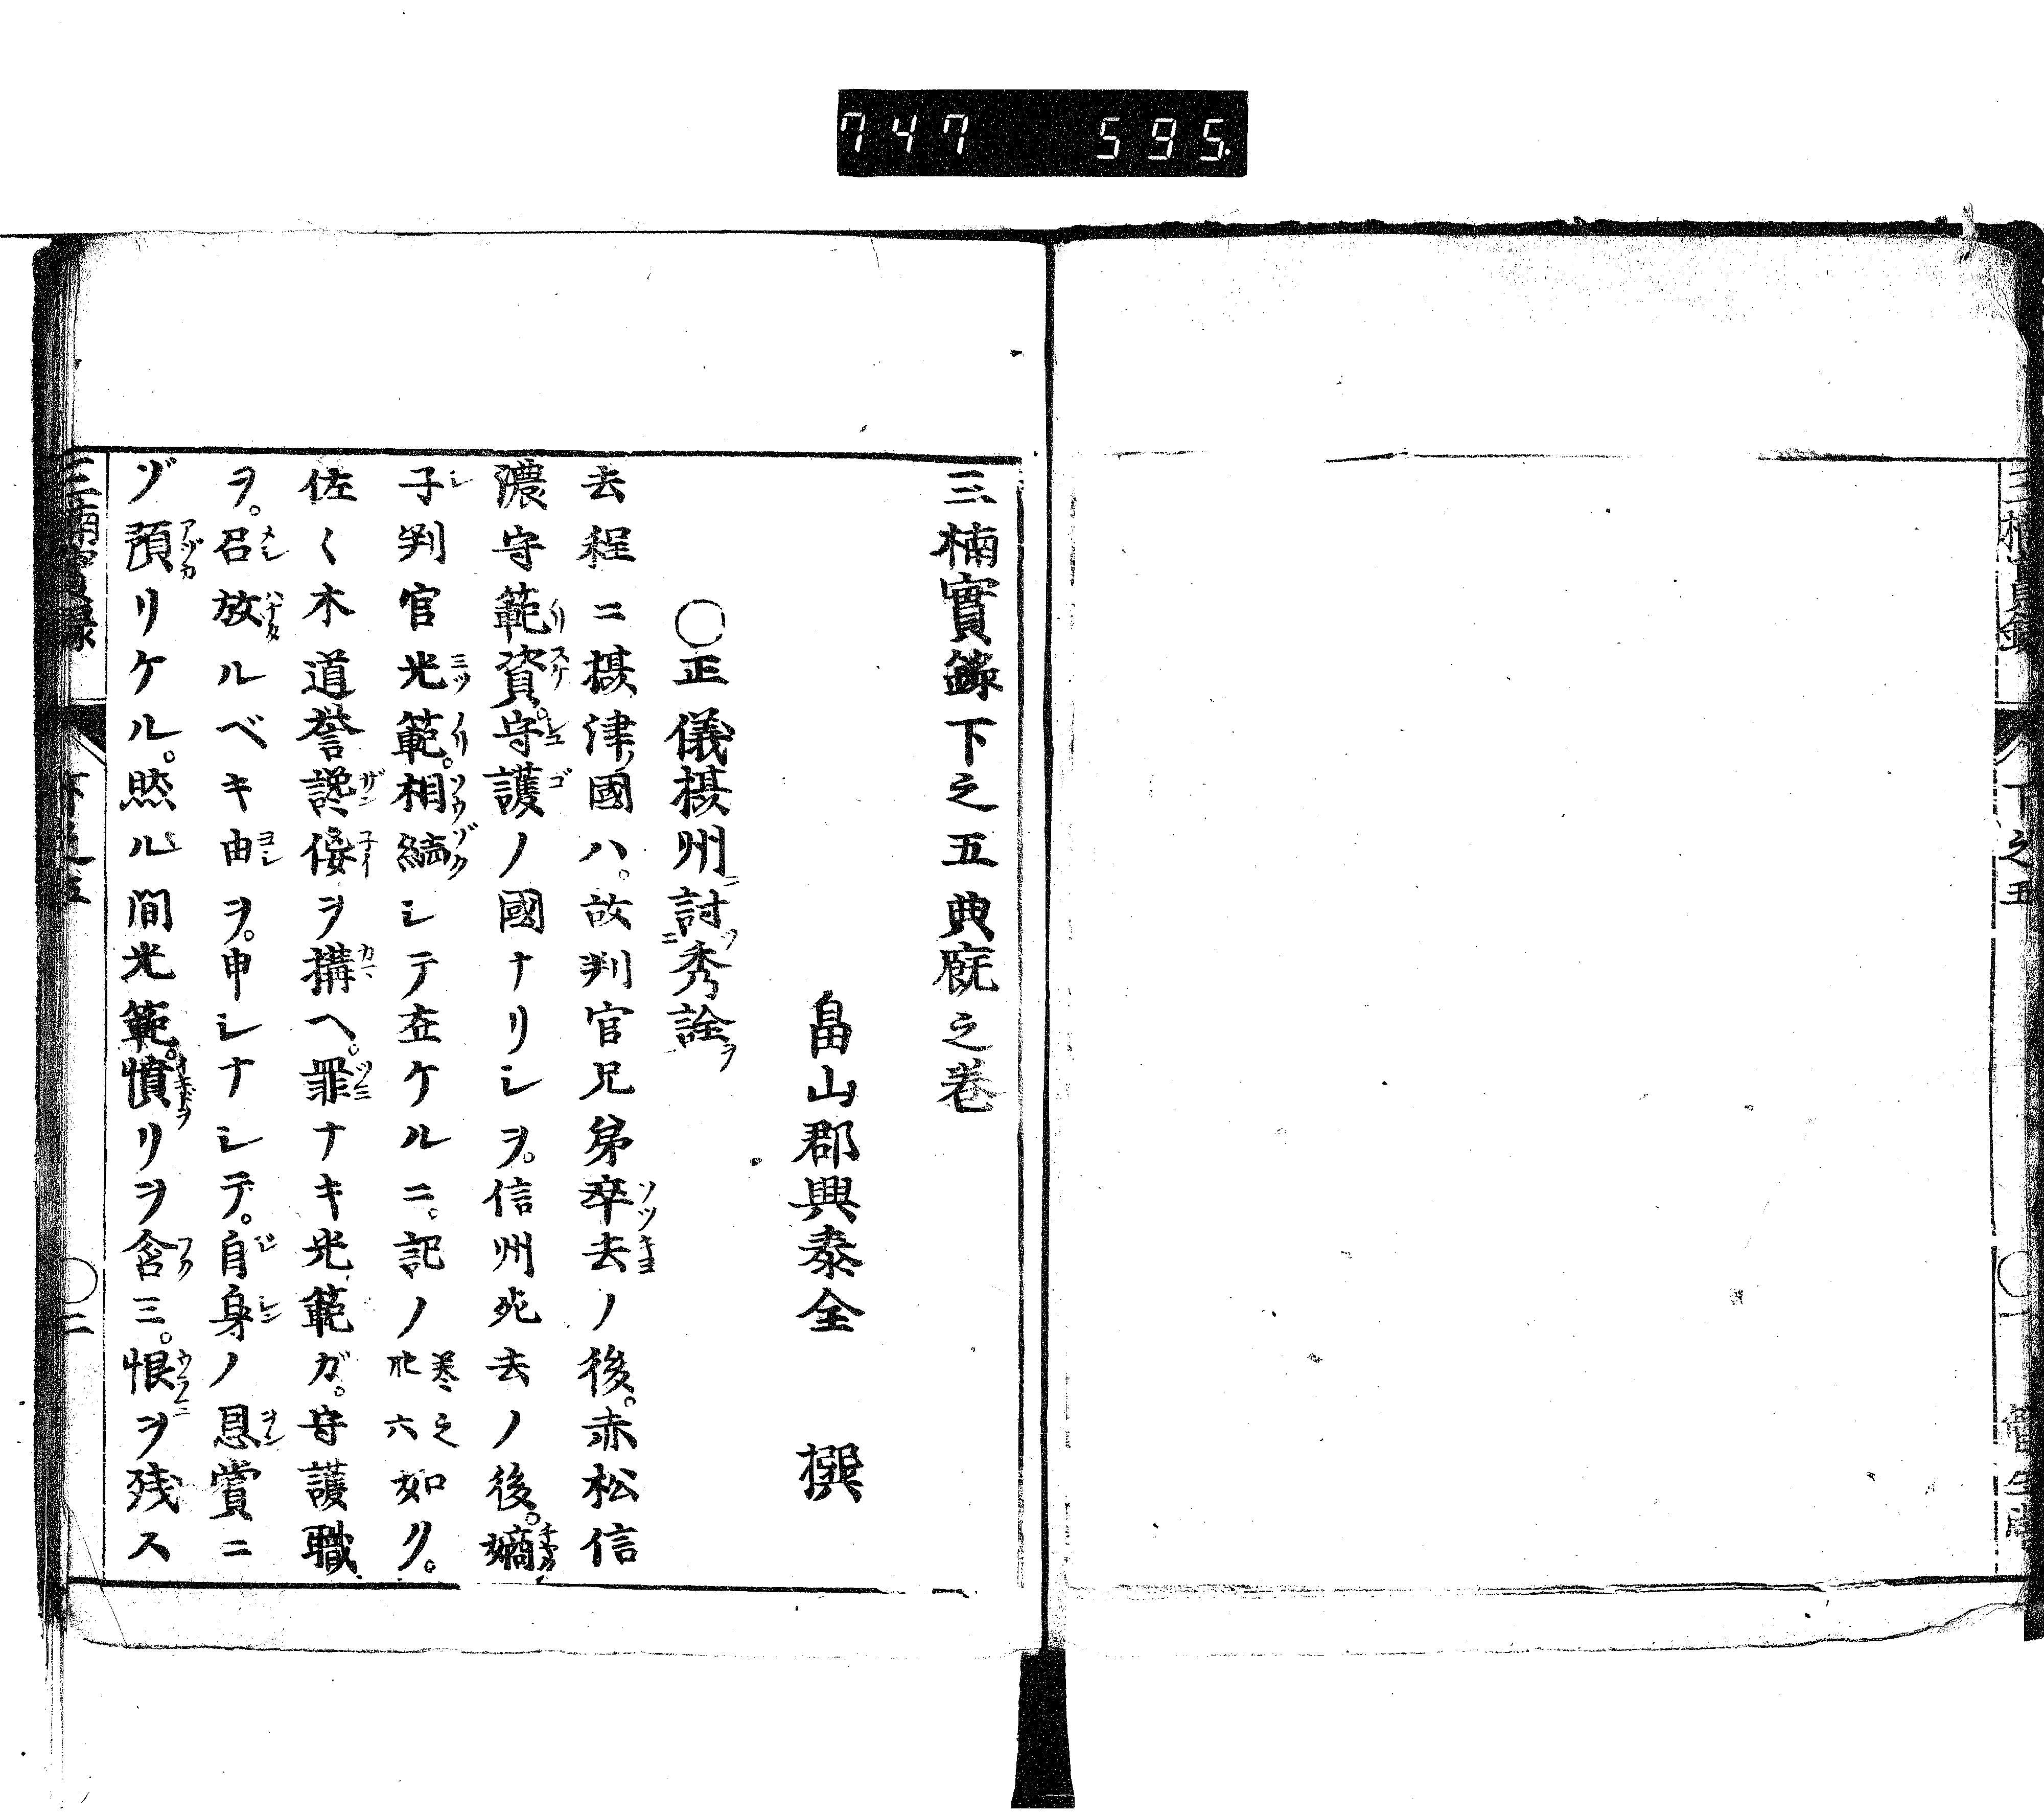 747 595
三楠實錄下之五典厩之巻
畠山郡興泰全 撰
○正儀摂州ニ討ツ二秀詮ヲ
去程ニ摂津國ハ。故判官兄弟卒去ノ後。赤松信
濃守範資。守護ノ國ナリシヲ。信州死去ノ後。嫡
子判官光範。相續シテ在ケルニ。記ノ巻之卅六如ク。
佐々木道誉讒佞ヲ搆ヘ。罪ナキ光範ガ。守護職
ヲ。召放ルベキ由ヲ。申シナシテ。自身ノ恩賞ニ
ヅ預リケル。然ル間光範。憤リヲ含ミ。恨ヲ残ス
三楠實錄 下之五 ○二
三楠實錄 下之五 ○一